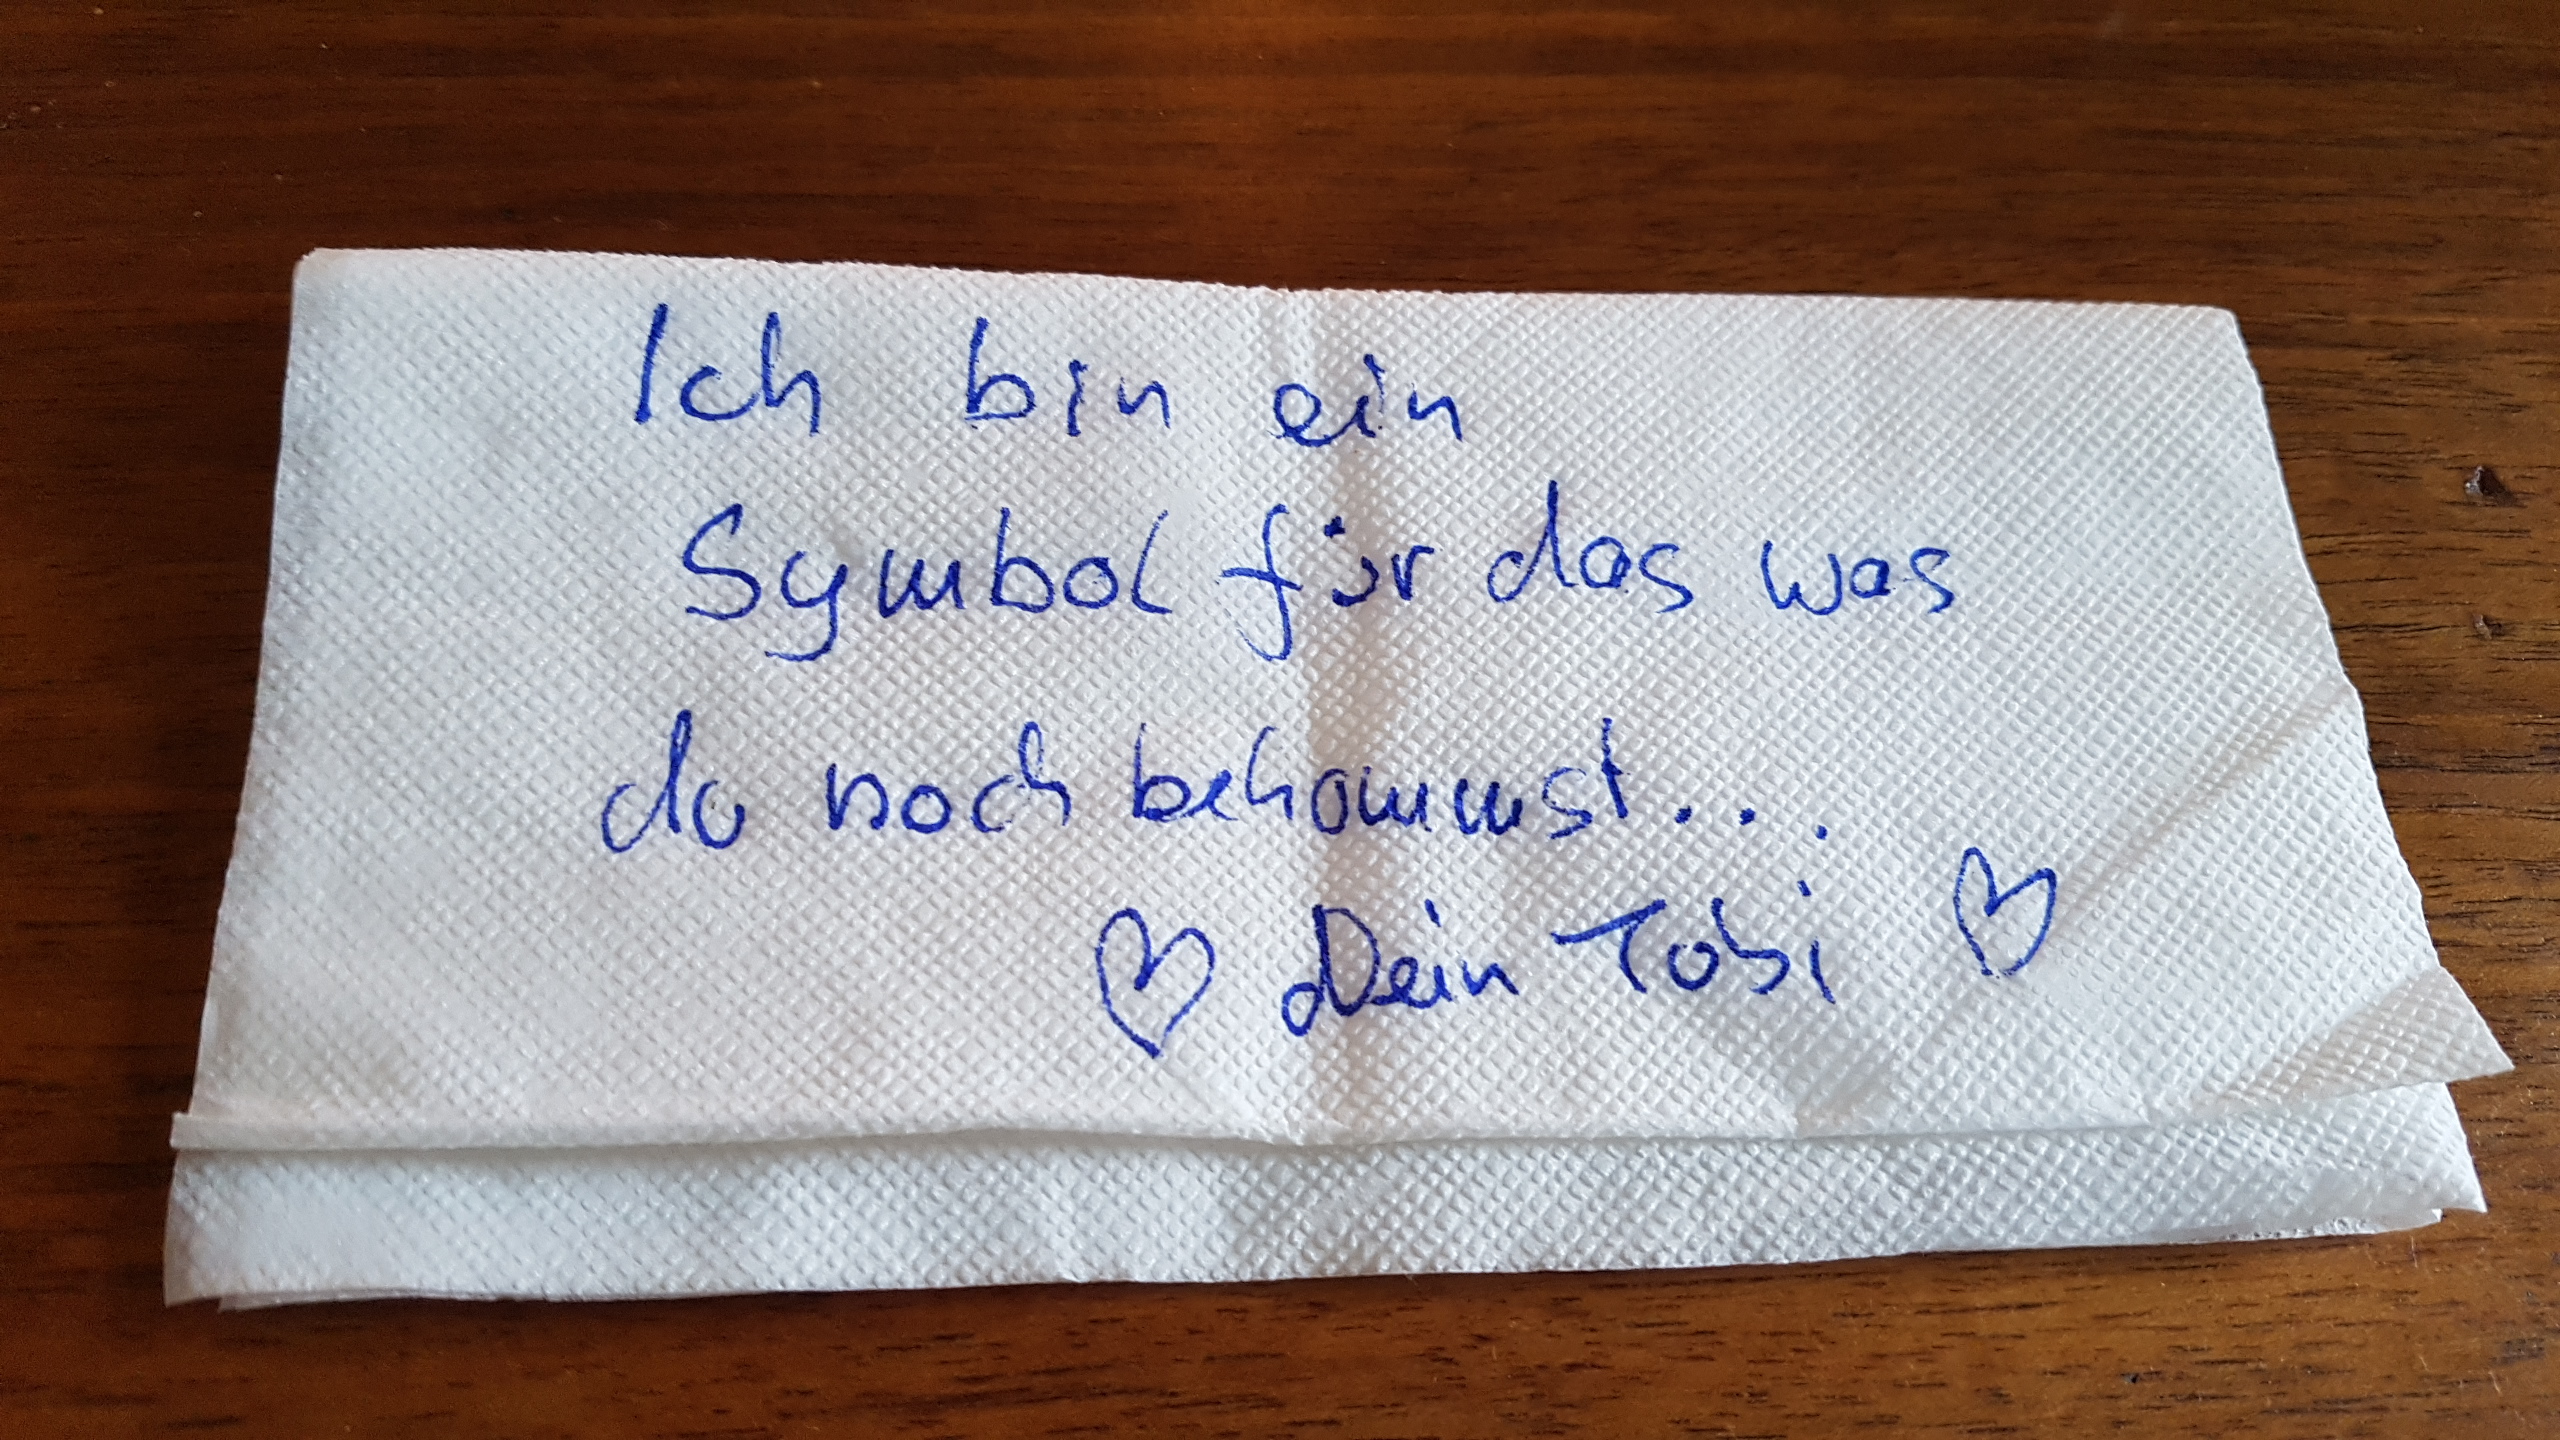 Ich bin ein
Symbol für das was
du noch bekommst...
♡ Dein Tobi ♡